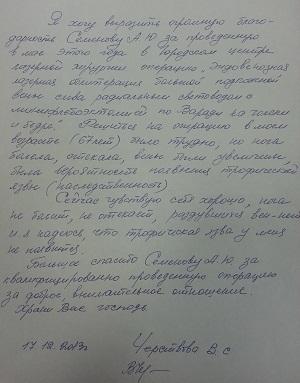 Я хочу выразить огромную благо-
дарность Семенову А.Ю за проведенную
в мае этого года в Городском центре
лазерной хирургии операцию „Эндовенозная
лазерная облитерация большой подкожной
вены слева радиальным световодом с
минифлебэктомией по Варади на голени
и бедре." Решится на операцию в моем
возрасте (67лет) было трудно, но нога
болела, отекала, вены были увеличены,
была вероятность появления трофической
язвы (наследственность)
Сейчас чувствую себя хорошо, нога
не болит, не отекает, раздувшихся вен-нет
и я надеюсь, что трофическая язва у меня
не появится.
Большое спасибо Семенову А.Ю. за
квалифицированно проведенную операцию
за доброе, внимательное отношение.
Храни Вас господь.
17.12.2013г. Черствова В.С